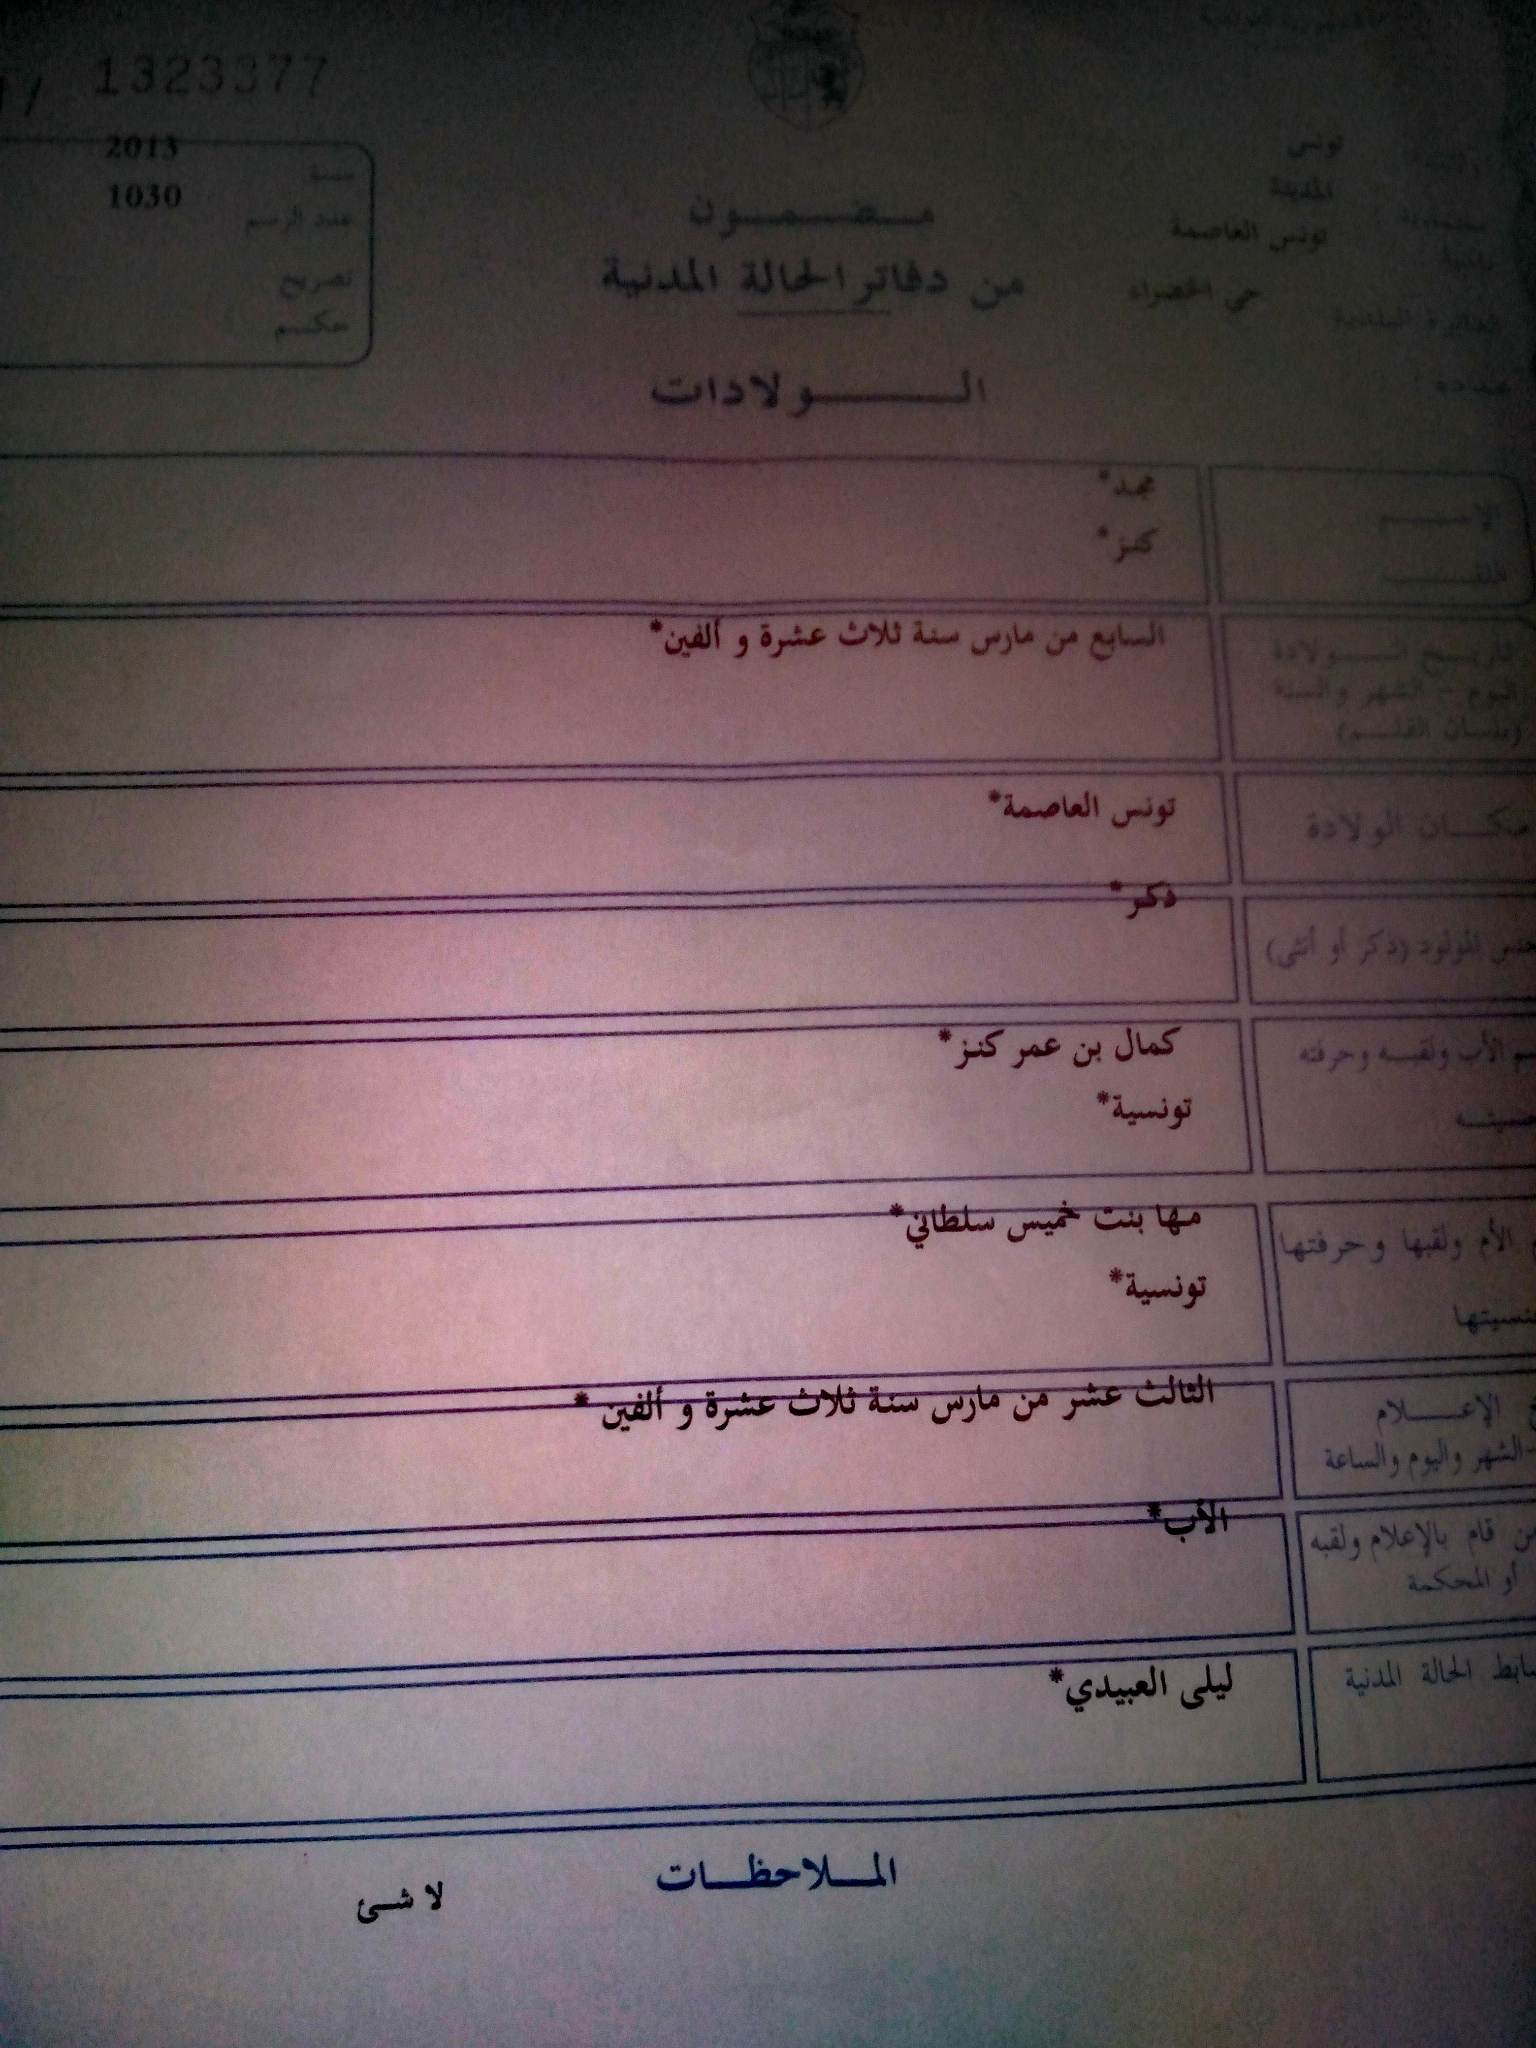 الجمهورية التونسية
1323377
تونس
المدينة
تونس العاصمة
الدائرة البلدية حي الخضراء
سنة 2013
عدد الرسم 1030
تصريح
حكم
مضمون
من دفاتر الحالة المدنية
الولادات
الإسم
*
اللقب كنز*
تاريخ الولادة السابع من مارس سنة ثلاث عشرة و ألفين*
اليوم - الشهر والسنة
(بلسان القلم)
مكان الولادة تونس العاصمة*
جنس المولود (ذكر أو أنثى) ذكر*
الأب ولقبه وحرفته كمال بن عمر كنز*
تونسية*
الأم ولقبها وحرفتها مها بنت خميس سلطاني*
تونسية*
الإعلام الثالث عشر من مارس سنة ثلاث عشرة و ألفين *
الشهر واليوم والساعة
قام بالإعلام ولقبه الأب*
أو المحكمة
الحالة المدنية ليلى العبيدي*
الملاحظات
لا شئ